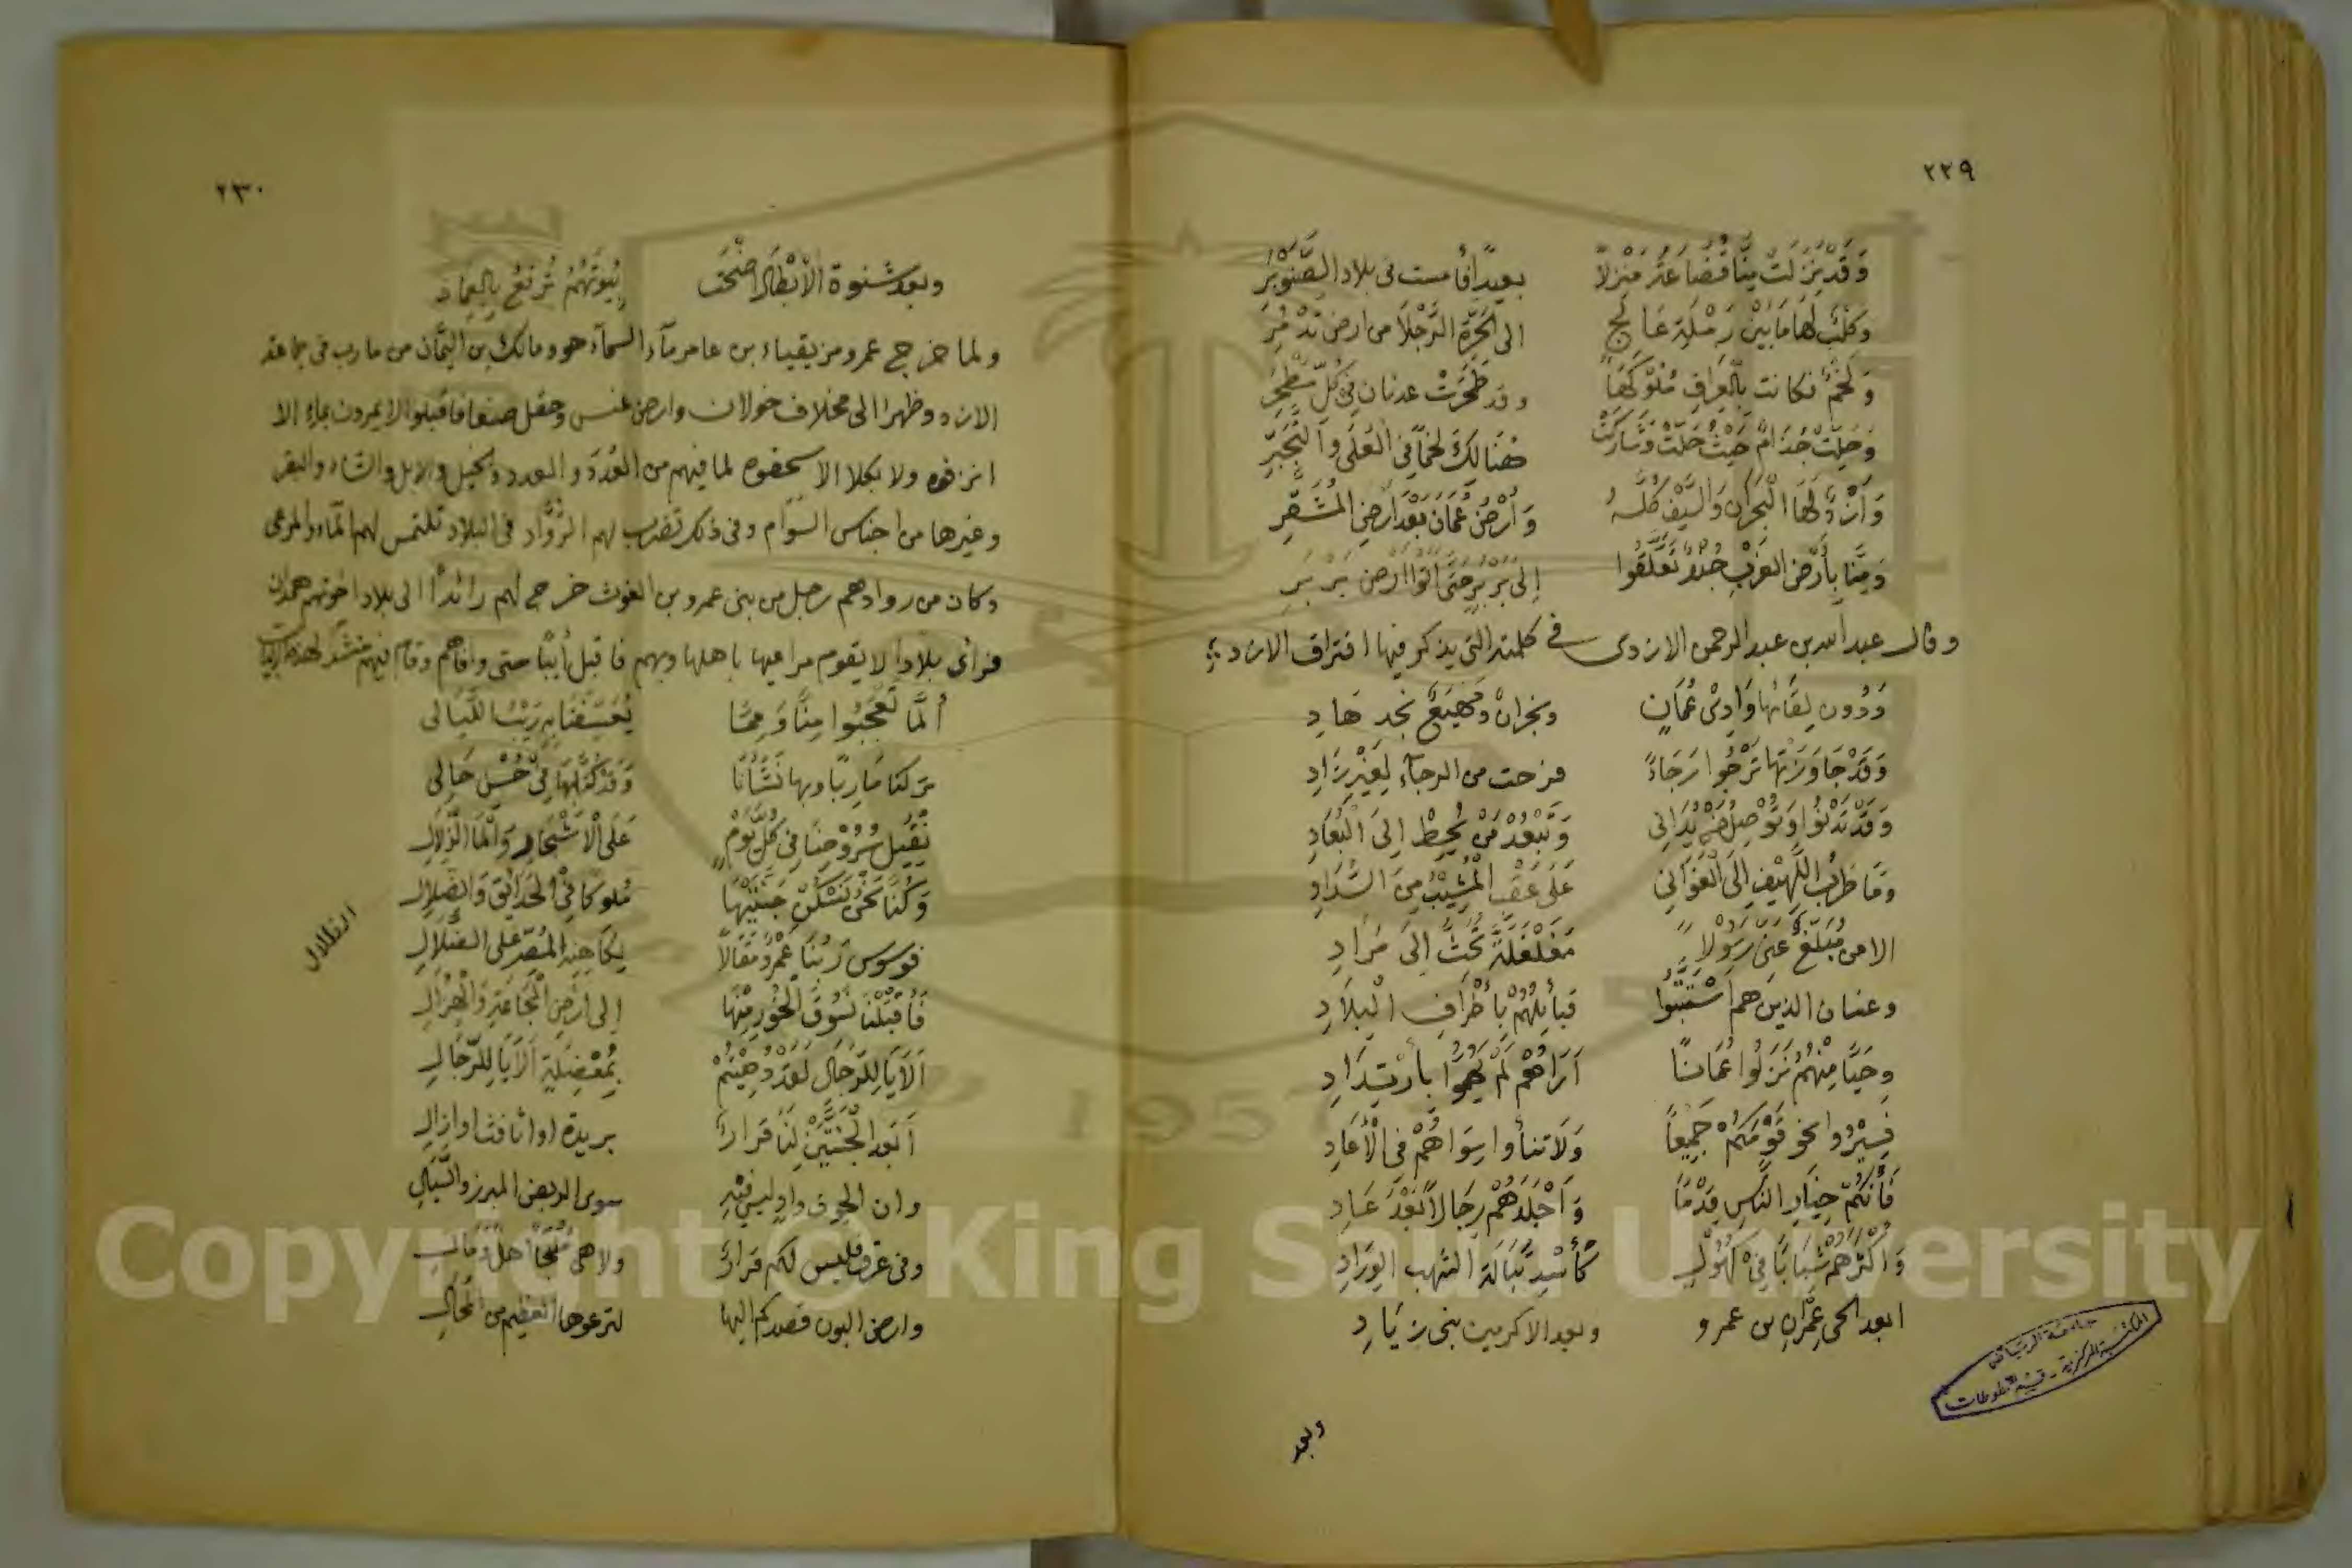 ٢٢٩
وَقَدْ نَزَلَتْ مِنَّا قُضَاعَةُ مَنْزِلاً بعيدًا فأمست فى بلاد الصَّنَوْبَرِ
وَكَلْبٌ لَهَا مَا بَيْنَ رَمْلَةِ عَالِجٍ الى الحَرَّةِ الرَّجْلَا من ارض تَدْمُرِ
وَلَخْمٌ فكانت بِالْعِرَاقِ مُلُوكُهَا وقد طَحَرَتْ عدنان فى كُلِّ مَطْحَرِ
وَحَلَّتْ جُذَامٌ حَيْثُ حَلَّتْ وَشَارَكَتْ هُنَالِكَ لَخْمًا فى الْعُلَى وَالتَّجَبُّرِ
وَأَزْدٌ لَهَا الْبَحْرَانِ وَالسِّيْفُ كُلُّهُ وَأَرْضُ عُمَانَ بَعْدَ أَرْضِ الْمُشَقَّرِ
وَمِنَّا بِأَرْضِ الغَرْبِ جُنْدٌ تَعَلَّقُوا إِلَى بَرْبَرٍ حَتَّى أَتَوْا أَرْضَ بَرْبَرِ
وقال عبد الله بن عبد الرحمن الازدى فى كلمته التى يذكر فيها افتراق الازد
وَدُون لِقَائها وَادِىْ عُمَانٍ ونجران ومَهْيَعُ نجد هَادِ
وَقَدْ جَاوَزْتَهَا تَرْجُوا رَجَاءً فرحت من الرجآءِ لِغَيْرِ زَادِ
وَقَدْ تَدْنُوا وَتُوْصِلُ مَنْ يُدَانِى وَتَبْعُدُ مَنْ يُحِطْ إِلَى الْبُعَادِ
وَمَا طَرَبُ اللَّهِيْفِ إِلَى الْغَوَانِى عَلَى عَقَبِ الْمُشِيْبِ مِنَ السَّدَادِ
الا من مُبَلِّغٌ عَنِّى رَسُوْلاً مُغَلْغَلَةً تَخُبُّ إِلَى مُرَادِ
وغسان الذين هم اسْتَتَبُّوا قبائلهُمْ بِأَطْرَافِ الْبِلَادِ
وحَيًّا مِنْهُمُ نَزَلُوا عُمَانًا أَرَاهُمْ لَمْ يَهُمُّوا بِارْتِدَادِ
فَسِيْرُوا نحو قَوْمِكُمُ جَمِيْعًا وَلَا تنأوا سِوَاهُمْ فِى الْأَعَادِ
فَأَنْتُمْ خِيَارُ النَّاسِ قِدْمًا وَأَجْلَدُهُمْ رِجَالاً بَعْدَ عَادِ
وَأَكْثَرُهُمْ شَبَابًا فِىْ كُهُوْلٍ كَأُسْدِ تَبَالَةَ الشُّهُب الوِرَادِ
ابعد الحى عِمْرَانِ بن عمرو وبعد الاكرمين بنى زِيَادِ
وبعد
٢٣٠
وبعد شنوة الْأَبْطَالِ اضْحَتْ بُيُوتُهُمُ تُرَفَّعُ بِالْعِمَادِ
ولما خرج عمرو مزيقياء بن عامر مآء السمآء هو ومالك بن اليَمَان من مارب فى جماعة
الازد وظهرا الى مخلاف خولان وارض عنس وحقل صنعا فاقبلوا لا يمرون بماء الا
انزفوه ولا بكلا الا سحفوه لما فيهم من العُدَد و العدد والخيل والابل والشاء والبقر
وغيرها من اجناس السوام وفى ذلك تضرب لهم الرُّوَّاد فى البلاد تلتمس لهم المآء والمرعى
وكان من روادهم رجل من بنى عمرو بن الغوث خرج لهم رائدًا الى بلاد اخوتهم همدان
فرأى بلادا لا يقوم مراعيها باهلها وبهم فاقبل آيبًا حتى وافاهم وقام فيهم منشدًا لهذه الابيات
أَلَمَّا تَعْجَبُوا مِنَّا وَمِمَّا يُعَسِّفُنَا بِهِ رَيْبُ اللَّيَالِى
تركنا مَارِبًا وبها نَشَأْنَا وَقَدْ كُنَّا بِهَا فِىْ حُسْنِ حَالِى
نُقَيِّلُ سُرُوْحَنَا فِى كُلِّ يَوْمٍ عَلَى الْأَشْجَارِ وَالْمَآ الزُّلَالِ
وَكُنَّا نَحْنُ نَسْكُنُ جَنَّتَيْهَا مُلُوكًا فِى الْحَدَائِقِ وَالضَّلَالِ
الظلال
فوسوس رَبُّنَا عَمْرٌو مَقَالاً لِكَاهِنِهِ الْمُصِرِّ عَلَى الضَّلَالِ
فَأَقْبَلْنَا نَسُوْقُ الْخُورَ مِنْهَا إِلَى أَرْضِ الْمَجَاعَةِ وَالْهُزَالِ
أَلَا يَا لِلرِّجَالِ لَقَدْ دُهِيْتُمْ بِمُعْضِلَةٍ أَلَا يَا لِلرِّجَالِ
أَبَعْدَ الْجَنَّتَيْنِ لَنَا قَرَارٌ بريدة او اثافت او ازال
وان الجوف واد ليس فيه سوى الربض المبرز والسَّيَالِ
وفى غرق فليس لكم قرارٌ ولا هى مُلْجَأ أهل ومَال
وارض البون قصدكم اليها لترعوها العظيم من المُحَالِ
جامعة الرياض
المكتبة المركزية - قسم المخطوطات
Copyright © King Saud University
1957